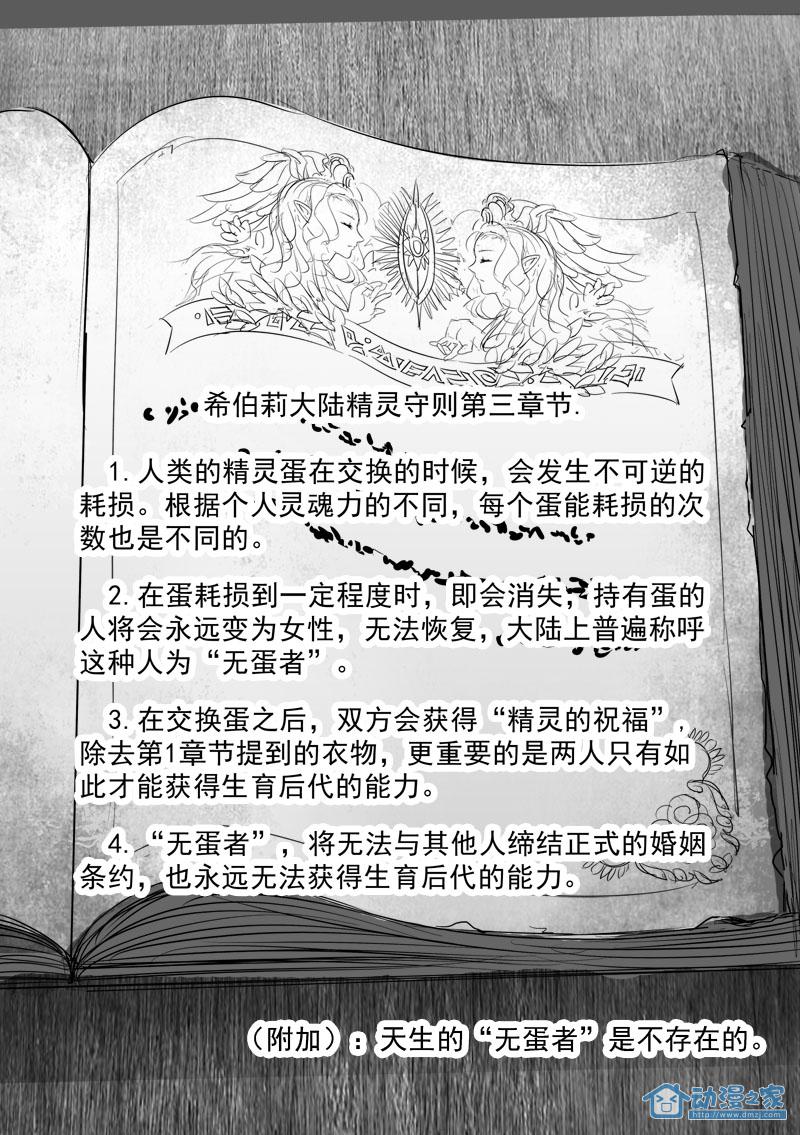 希伯莉大陆精灵守则第三章节.
1.人类的精灵蛋在交换的时候，会发生不可逆的
耗损。根据个人灵魂力的不同，每个蛋能耗损的次
数也是不同的。
2.在蛋耗损到一定程度时，即会消失，持有蛋的
人将会永远变为女性，无法恢复，大陆上普遍称呼
这种人为“无蛋者”。
3.在交换蛋之后，双方会获得“精灵的祝福”，
除去第1章节提到的衣物，更重要的是两人只有如
此才能获得生育后代的能力。
4.“无蛋者”，将无法与其他人缔结正式的婚姻
条约，也永远无法获得生育后代的能力。
（附加）：天生的“无蛋者”是不存在的。
动漫之家
http://www.dmzj.com